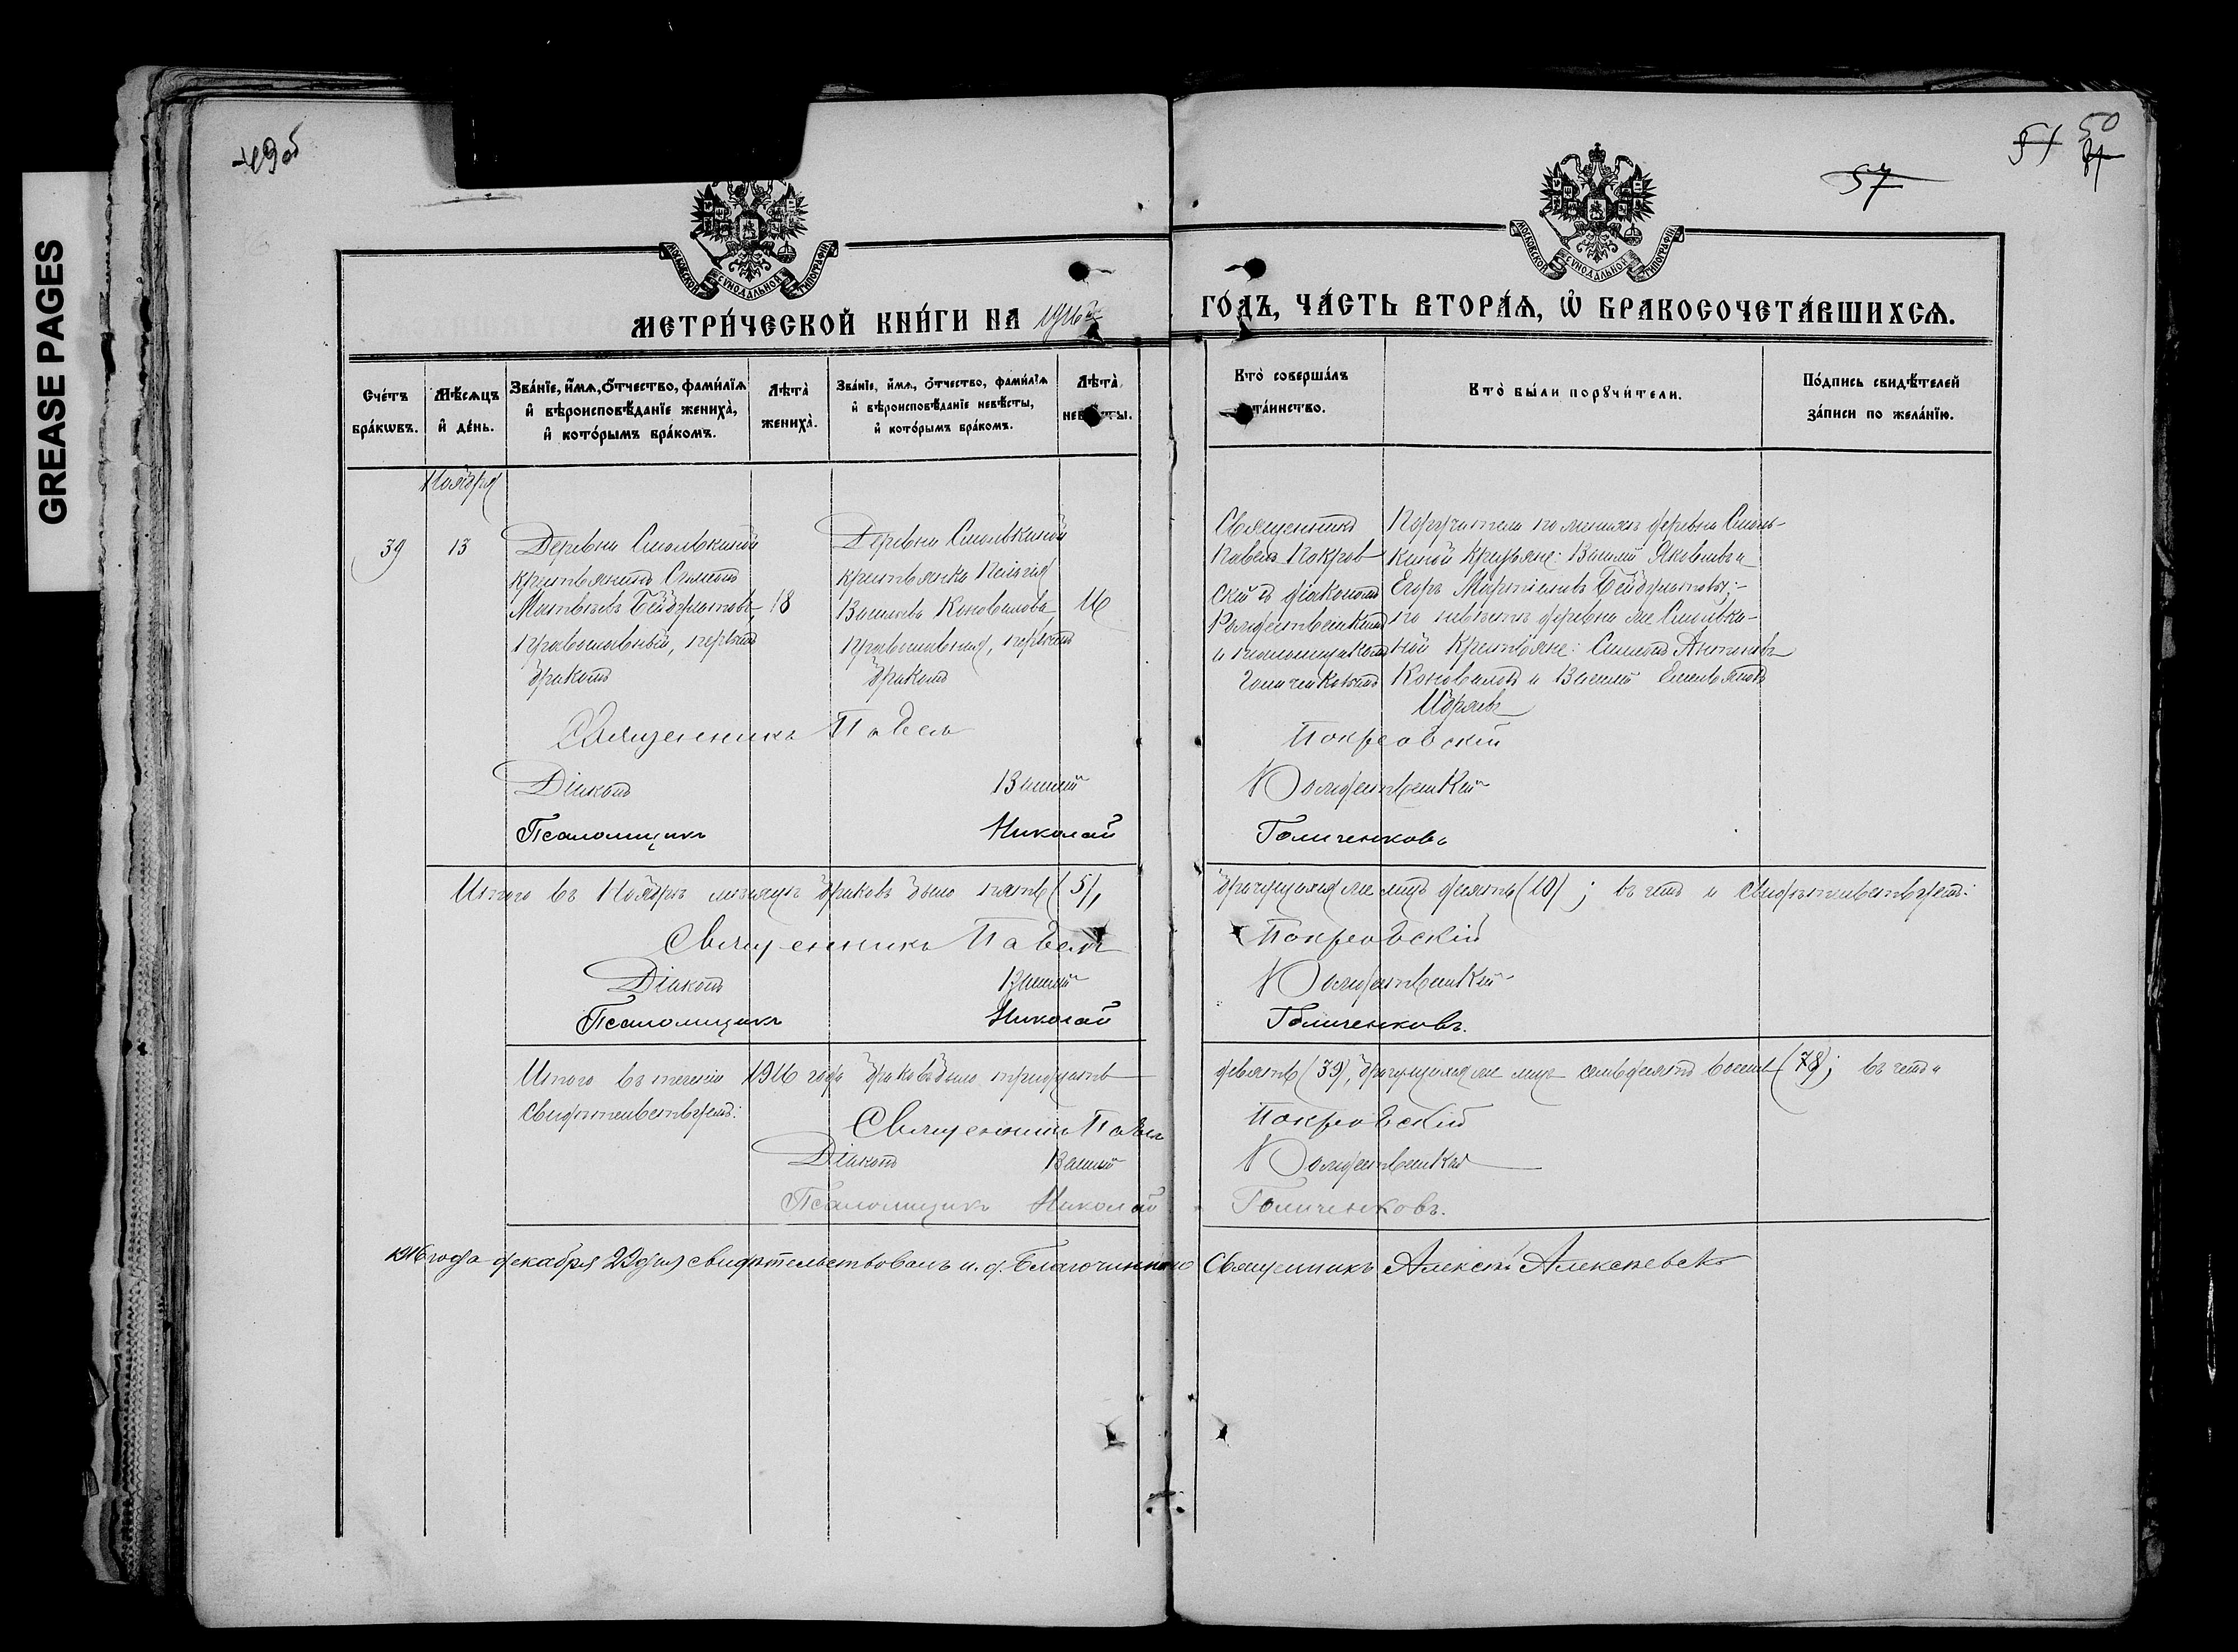 GREASE PAGES
49об
57
51
50
МОСКОВСКОЙ СѴНОДАЛЬНОЙ ТИПОГРАФІИ
МОСКОВСКОЙ СѴНОДАЛЬНОЙ ТИПОГРАФІИ
МЕТРИ́ЧЕСКОЙ КНИ́ГИ НА 1916 й ГО́ДЪ, ЧА́СТЬ ВТОРА́Ѧ, Ѡ҆ БРАКОСОЧЕТА́ВШИХСѦ.
Сче́тъ бра́кѡвъ.
Мѣ́сѧцъ и҆ де́нь.
Зва́нїе, и҆́мѧ, ѻ҆́тчество, фами́лїѧ
и҆ вѣроисповѣ́данїе жениха̀,
и҆ кото́рымъ бра́комъ.
Лѣ́та жениха̀.
Зва́нїе, и҆́мѧ, ѻ҆́тчество, фами́лїѧ
и҆ вѣроисповѣ́данїе невѣ́сты,
и҆ кото́рымъ бра́комъ.
Лѣ́та невѣ́сты.
Кто̀ соверша́лъ
та́инство.
Кто̀ бы́ли порꙋчи́тели.
По́дпись свидѣ́телей
за́писи по жела́нїю.
Ноября
39
13
Деревни Смолькиной
крестьянинъ Симеонъ
Матвѣевъ Бейбулатовъ,
православный, первымъ
бракомъ
18
Деревни Смолькиной
крестьянка Пелагія
Васильева Коновалова,
православная, первымъ
бракомъ
16
Священникъ
Павелъ Покров-
скій съ діакономъ
Рождественскимъ
и псаломщикомъ
Голиченковымъ
Поручители по женихѣ деревни Смоль-
киной крестьяне: Василій Яковлевъ и
Егоръ Мартіановъ Бейбулатовы;-
по невѣстѣ деревни же Смолько-
ной крестьяне: Симеонъ Антоновъ
Коноваловъ и Василій Емельяновъ
Священникъ Павелъ Покровскій
Діаконъ Василій Рождественскій
Псаломщикъ Николай Голиченковъ
Итого въ Ноябрѣ мѣсяцѣ браковъ было пять (5), брачущихся же лицъ десять (10); въ чемъ и свидѣтельствуемъ:
Священникъ Павелъ Покровскій
Діаконъ Василій Рождественскій
Псаломщикъ Николай Голиченковъ.
Итого въ теченіи 1916 года браковъ было тридцать девять (39), брачущихся же лицъ семьдесятъ восемь (78); въ чемъ и
свидѣтельствуемъ:
Священникъ Павелъ Покровскій
Діаконъ Василій Рождественскій
Псаломщикъ Николай Голиченковъ.
1916 года декабря 22 дня свидѣтельствовалъ и. д. Благочиннаго Священникъ Алексѣй Алексѣевск